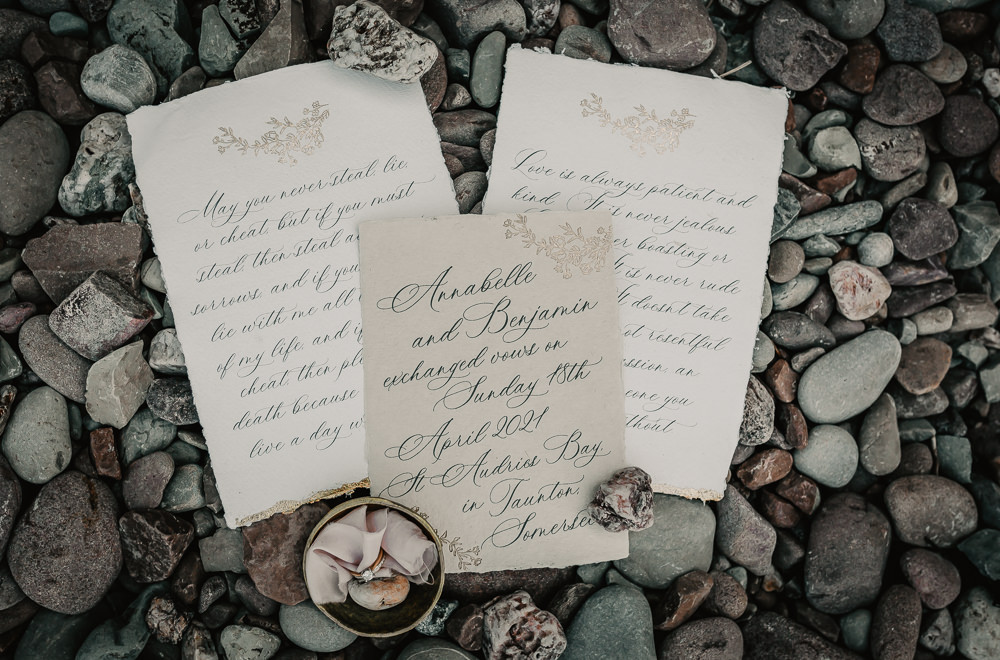 May you never steal, lie,
or cheat, but if you must
steal, then steal a
sorrows, and if you
lie with me all
of my life, and if
cheat, then pl
death because
live a day w
Love is always patient and
kind. It is never jealous
er boasting or
is never rude
It doesn't take
ot resentful
ession, an
eone you
thout
Annabelle
and Benjamin
exchanged vows on
Sunday 18th
April 2021
St Audries Bay,
in Taunton,
Somerse